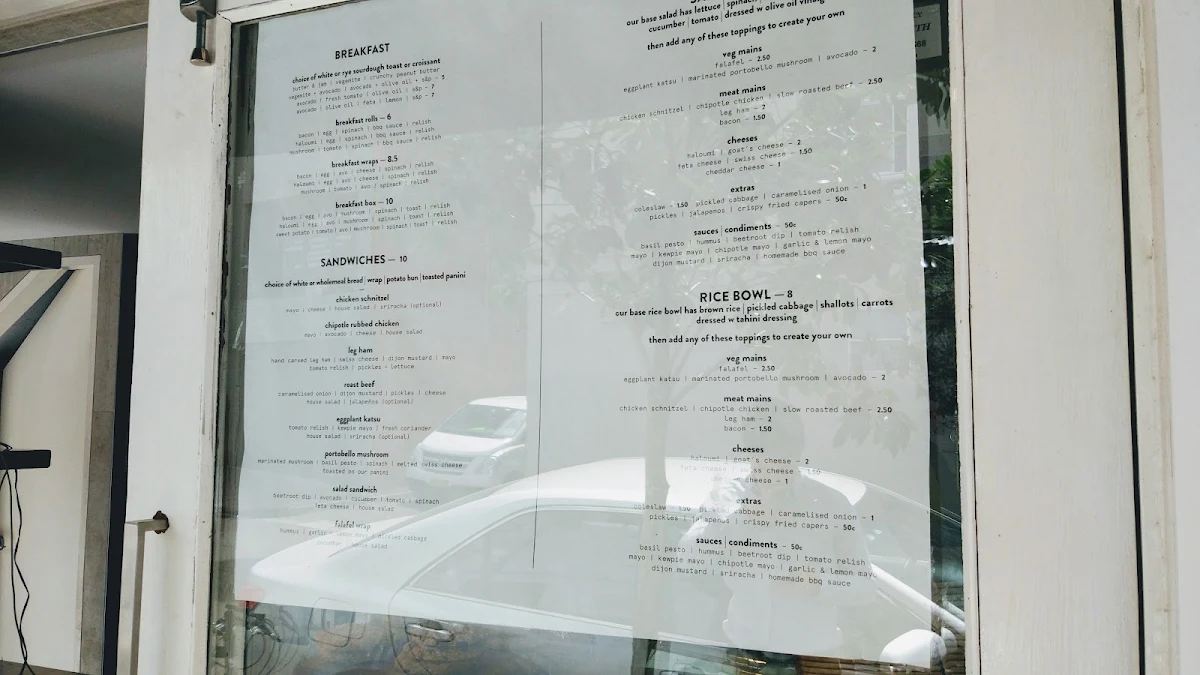 BREAKFAST
choice of white or rye sourdough toast or croissant
butter & jam | vegemite | crunchy peanut butter
vegemite + avocado | avocado + olive oil + s&p – 5
avocado | fresh tomato | olive oil | s&p – 7
avocado | olive oil | feta | lemon | s&p – 7
breakfast rolls — 6
bacon | egg | spinach | bbq sauce | relish
haloumi | egg | spinach | bbq sauce | relish
mushroom | tomato | spinach | bbq sauce | relish
breakfast wraps — 8.5
bacon | egg | avo | cheese | spinach | relish
haloumi | egg | avo | cheese | spinach | relish
mushroom | tomato | avo | spinach | relish
breakfast box — 10
bacon | egg | avo | mushroom | spinach | toast | relish
haloumi | egg | avo | mushroom | spinach | toast | relish
sweet potato | tomato | avo | mushroom | spinach | toast | relish
SANDWICHES — 10
choice of white or wholemeal bread | wrap | potato bun | toasted panini
chicken schnitzel
mayo | cheese | house salad | sriracha (optional)
chipotle rubbed chicken
mayo | avocado | cheese | house salad
leg ham
hand carved leg ham | swiss cheese | dijon mustard | mayo
tomato relish | pickles - lettuce
roast beef
caramelised onion | dijon mustard | pickles | cheese
house salad | jalapeños (optional)
eggplant katsu
tomato relish | kewpie mayo | fresh coriander
house salad | sriracha (optional)
portobello mushroom
marinated mushroom | basil pesto | spinach | melted swiss cheese
toasted as our panini
salad sandwich
beetroot dip | avocado | cucumber | tomato | spinach
feta cheese | house salad
falafel wrap
hummus | garlic + lemon mayo | pickled cabbage
cucumber | house salad
our base salad has lettuce | spinach
cucumber | tomato | dressed w olive oil vinaig
then add any of these toppings to create your own
veg mains
falafel – 2.50
eggplant katsu | marinated portobello mushroom | avocado – 2
meat mains
chicken schnitzel | chipotle chicken | slow roasted beef – 2.50
leg ham – 2
bacon – 1.50
cheeses
haloumi | goat's cheese – 2
feta cheese | swiss cheese – 1.50
cheddar cheese – 1
extras
coleslaw – 1.50 pickled cabbage | caramelised onion – 1
pickles | jalapeños | crispy fried capers – 50c
sauces | condiments – 50c
basil pesto | hummus | beetroot dip | tomato relish
mayo | kewpie mayo | chipotle mayo | garlic & lemon mayo
dijon mustard | sriracha | homemade bbq sauce
RICE BOWL — 8
our base rice bowl has brown rice | pickled cabbage | shallots | carrots
dressed w tahini dressing
then add any of these toppings to create your own
veg mains
falafel – 2.50
eggplant katsu | marinated portobello mushroom | avocado – 2
meat mains
chicken schnitzel | chipotle chicken | slow roasted beef – 2.50
leg ham – 2
bacon – 1.50
cheeses
haloumi | goat's cheese – 2
feta cheese | swiss cheese – 1.50
cheese – 1
extras
coleslaw – 1.50 pickled cabbage | caramelised onion – 1
pickles | jalapeños | crispy fried capers – 50c
sauces | condiments – 50c
basil pesto | hummus | beetroot dip | tomato relish
mayo | kewpie mayo | chipotle mayo | garlic & lemon mayo
dijon mustard | sriracha | homemade bbq sauce